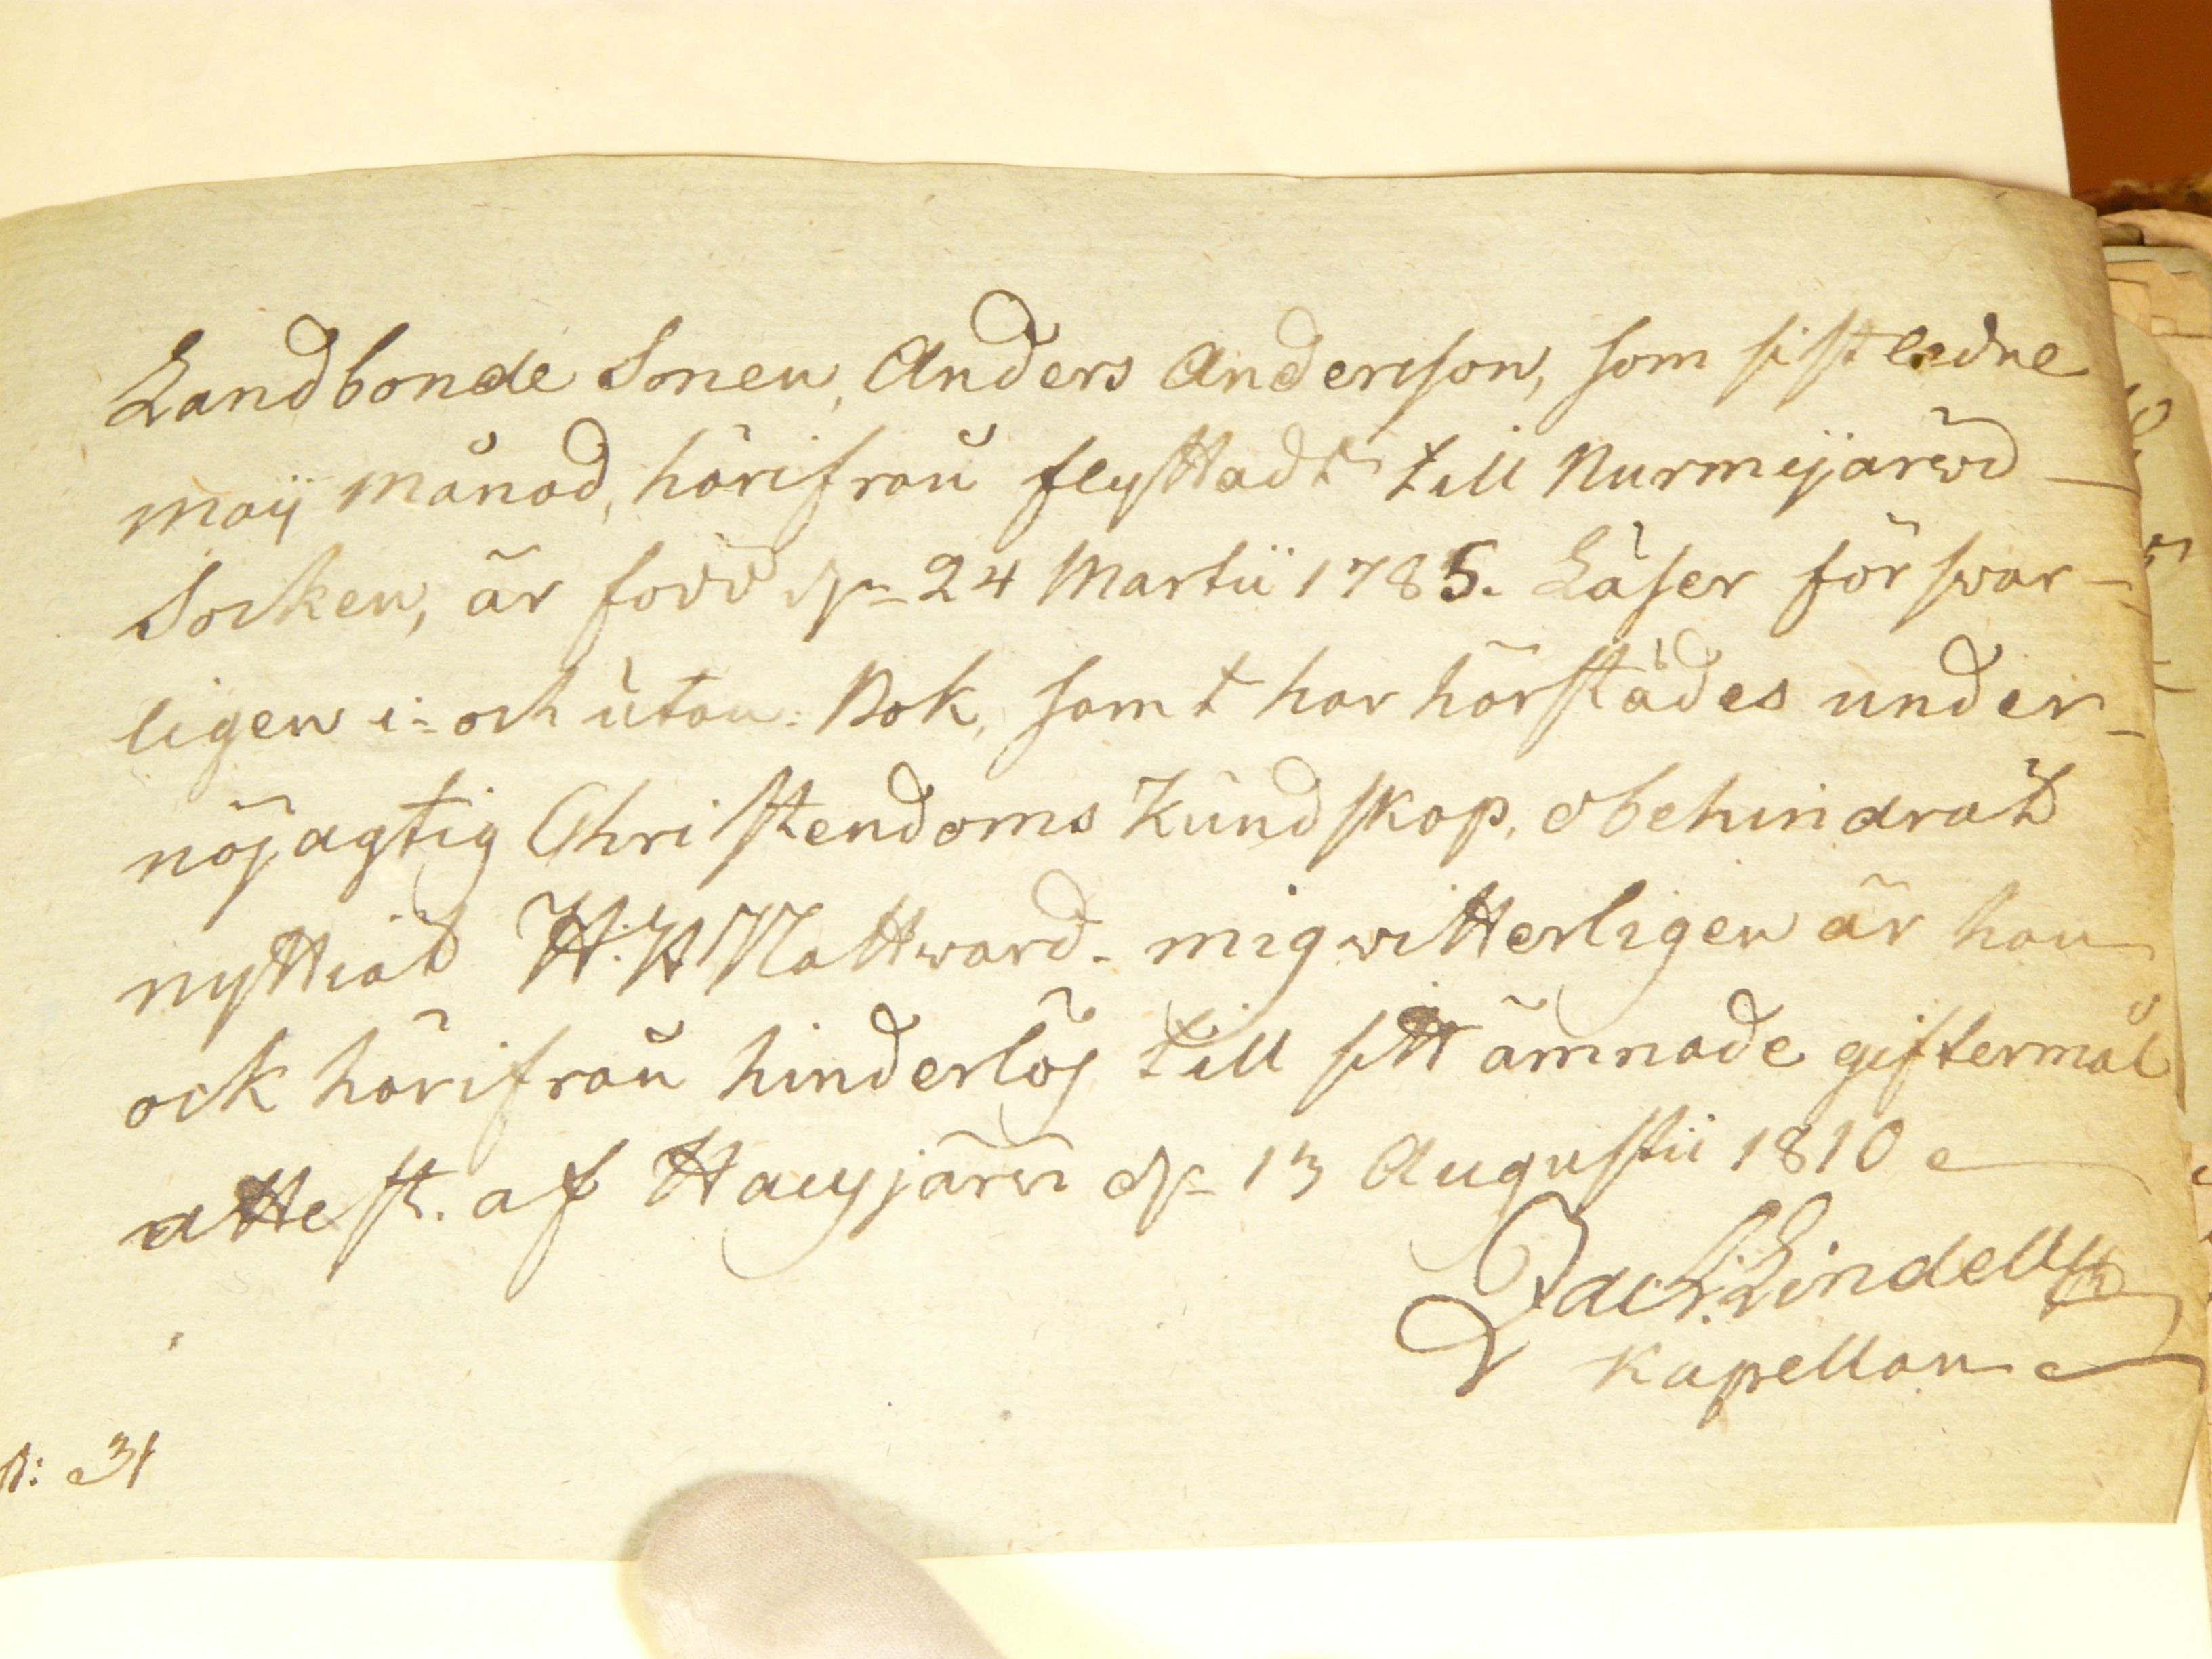 Landbonde Sonen, Anders Andersson, som sistledne
maij månad, härifrån flyttadt till Nurmijärwi
Socken, är född d. 24 Martii 1785. Läser förswar-
ligen i- och utan Bok, samt har härstädes under
nöjagtig Christendoms Kundskap, obehindrat
nyttiat H. H. Nattward. mig witterligen är han
ock härifrån hinderlös till sitt ämnade giftermål
attest. af Hausjärwi d. 13 Augustii 1810
Zach. Lindell
Kapellan
N: 31